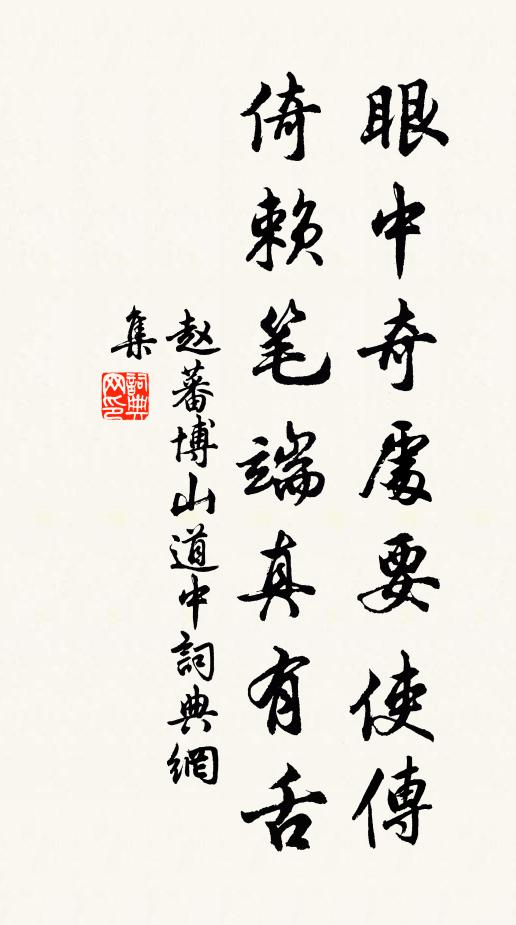 眼中奇處要使傳
倚赖笔端真有舌
赵蕃博山道中詞典網
集
詞典
网印